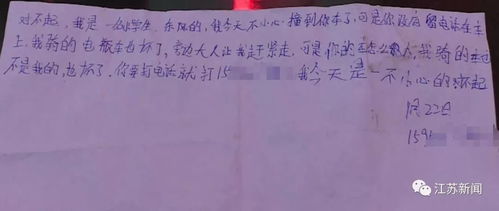 对不起，我是一小学生，东风的，我今天不小心撞到你车了，可是你没有留电话在车
上，我骑的电瓶车也坏了，旁边大人让我赶紧走，可是你的车怎么办，我骑的车也
不是我的，也坏了，你要打电话就打15 我今天是一不小心的对不起
周22日
159
江苏新闻